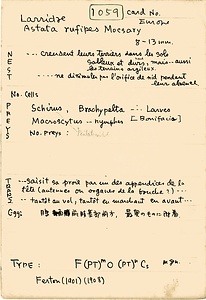 Larridae
1059 card No.
Europe
Astata rufipes Mocsary
8-13 mm.
NEST
... creusent leurs terriers dans les sols
sableux et durs, mais aussi
les terrains argileux.
.... ne dissimule pas l'orifice du nid pendant
leur absence.
No. Cells
PREYS
Schirus, Brachypelta -- Larves
Macroscytus -- nymphes [Bonifaria]
No. Preys :
TRANS.
... saisit sa proie par un des appendices de la
tête (antennes ou organes de la bouche ?) ...
.. tantôt en vol, tantôt en marchant en avant ...
Egg:
TYPE : F (PT)ᵐ O (PT)ⁿ Cs
Ferton (1901) (1908)